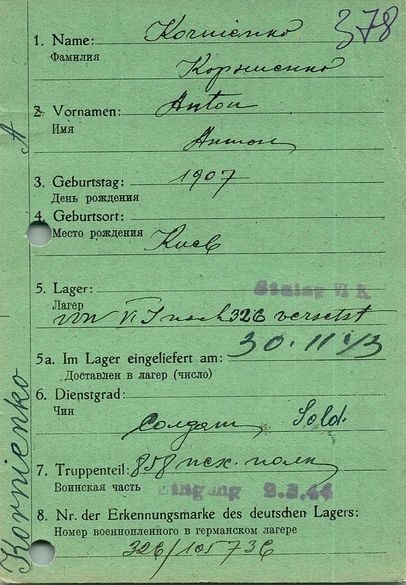 378
1. Name: Kornienko
Фамилия
Корниенко
2. Vornamen: Anton
Имя
Антон
3. Geburtstag: 1907
День рождения
4. Geburtsort:
Место рождения Киев
5. Lager: Stalag VI K
Лагер
von VI J nach 326 versetzt
5a. Im Lager eingeliefert am: 30. 11 43
Доставлен в лагер (число)
6. Dienstgrad:
Чин
Солдат, Sold.
7. Truppenteil: 858 пех. полк
Воинская часть Eingang 2.3.44
8. Nr. der Erkennungsmarke des deutschen Lagers:
Номер военнопленного в германском лагере
326/105736
A
Kornienko